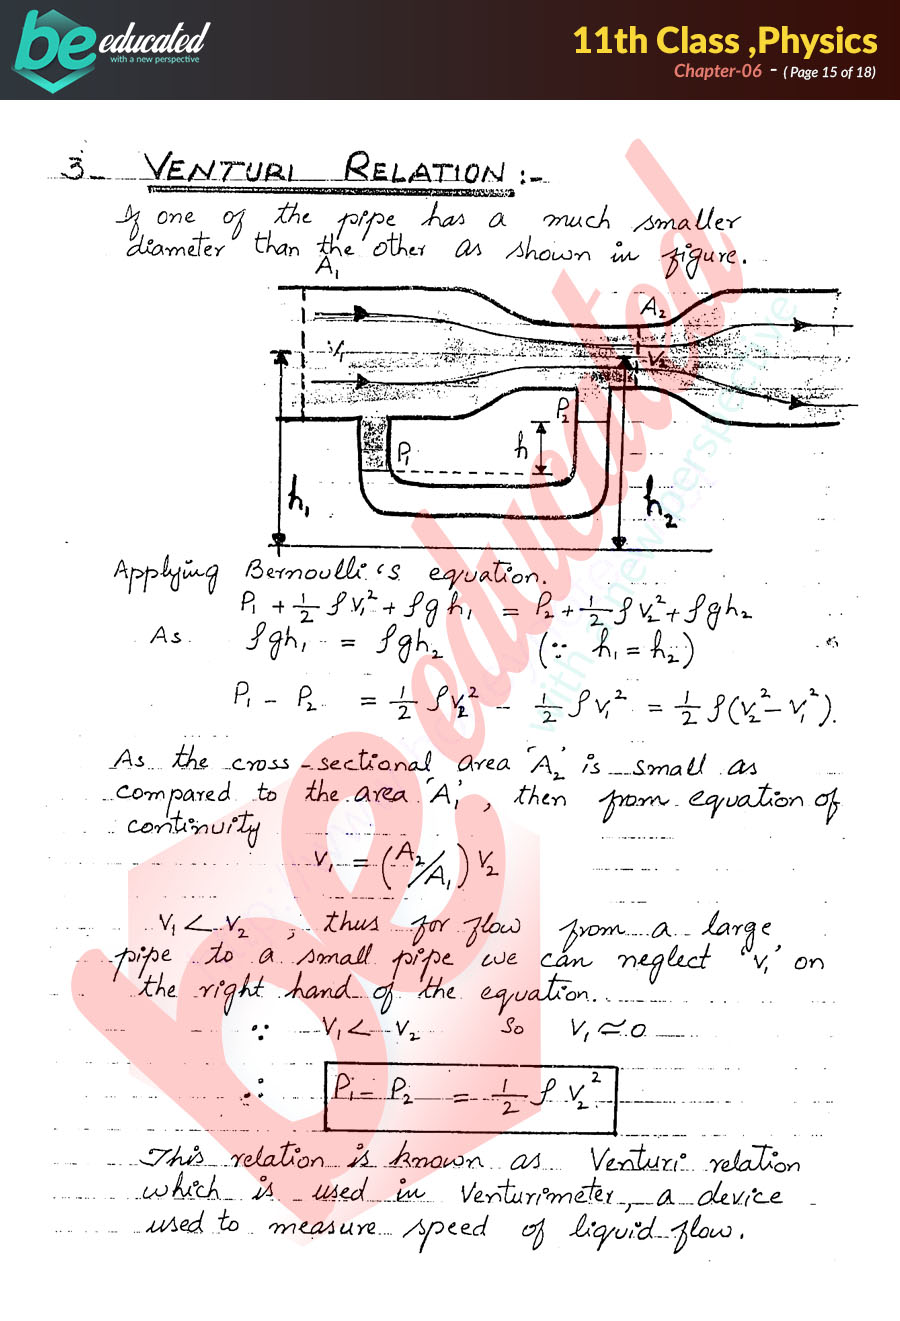 be educated
with a new perspective
11th Class ,Physics
Chapter-06 - ( Page 15 of 18)
3- VENTURI RELATION :-
If one of the pipe has a much smaller
diameter than the other as shown in figure.
A₁
A₂
V₁
V₂
P₂
P₁
h
h₁
h₂
Applying Bernoulli's equation.
P₁ + ½ ρ V₁² + ρ g h₁ = P₂ + ½ ρ V₂² + ρ g h₂
As ρgh₁ = ρgh₂ (∵ h₁ = h₂)
P₁ - P₂ = ½ ρ V₂² - ½ ρ V₁² = ½ ρ (V₂² - V₁²).
As the cross-sectional area 'A₂' is small as
compared to the area 'A₁', then from equation of
continuity
V₁ = (A₂/A₁) V₂
V₁ < V₂ , thus for flow from a large
pipe to a small pipe we can neglect 'V₁' on
the right hand of the equation.
∵ V₁ < V₂ So V₁ ≃ 0
∴ P₁ - P₂ = ½ ρ V₂²
This relation is known as Venturi relation
which is used in Venturimeter, a device
used to measure speed of liquid flow.
be educated